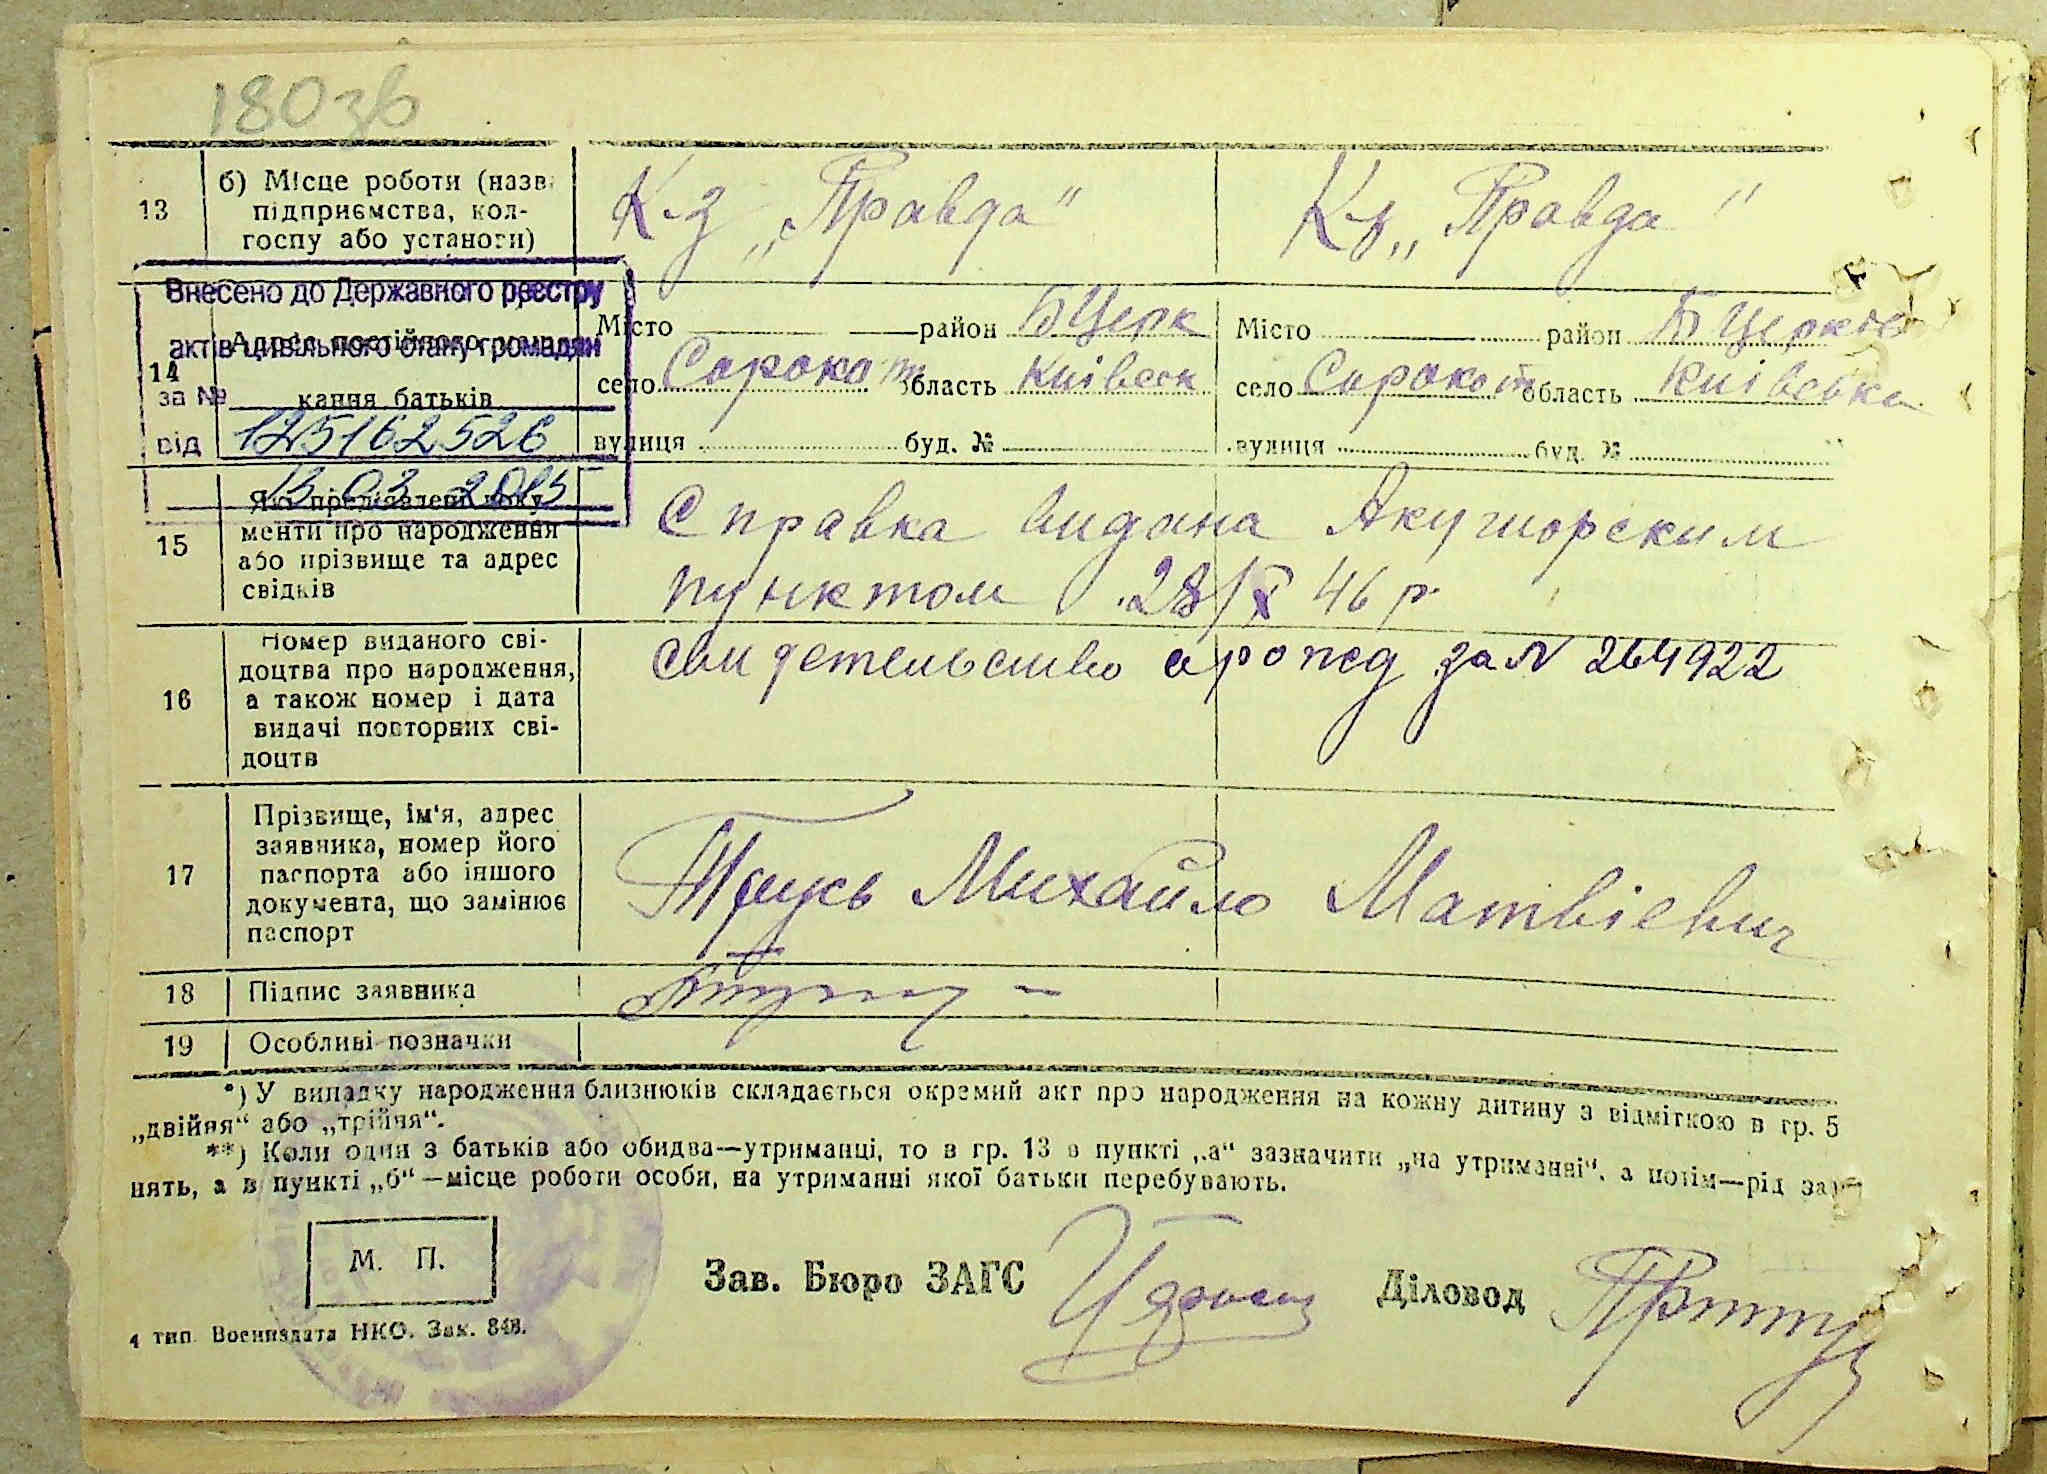 180 зв
13
б) Місце роботи (назв
підприємства, кол-
госпу або установи)
К-з „Правда"
К-з „Правда"
Внесено до Державного реєстру
актів цивільного стану громадян
за №
від 125162526
13 03 2015
14
Адрес постійного
кання батьків
Місто район БЦерк
село Сорокот область Київськ
вулиця буд. №
Місто район БЦерків
село Сорокот область Київська
вулиця буд. №
15
Які пред'явлені доку-
менти про народження
або прізвище та адрес
свідків
Справка видана Акушорским
пунктом 28/X 46 р.
16
Номер виданого сві-
доцтва про народження,
а також номер і дата
видачі повторних сві-
доцтв
свидетельство о рожд за N 264922
17
Прізвище, ім'я, адрес
заявника, номер його
паспорта або іншого
документа, що замінює
паспорт
Трусь Михайло Матвієвич
18
Підпис заявника
19
Особливі позначки
*) У випадку народження близнюків складається окремий акт про народження на кожну дитину з відміткою в гр. 5
„двійня“ або „трійня“.
**) Коли один з батьків або обидва—утриманці, то в гр. 13 в пункті „а“ зазначити „на утриманні“, а потім—рід за
нять, а в пункті „б“—місце роботи особи, на утриманні якої батьки перебувають.
М. П.
Зав. Бюро ЗАГС
Діловод
4 тип. Воениздата НКО. Зак. 848.